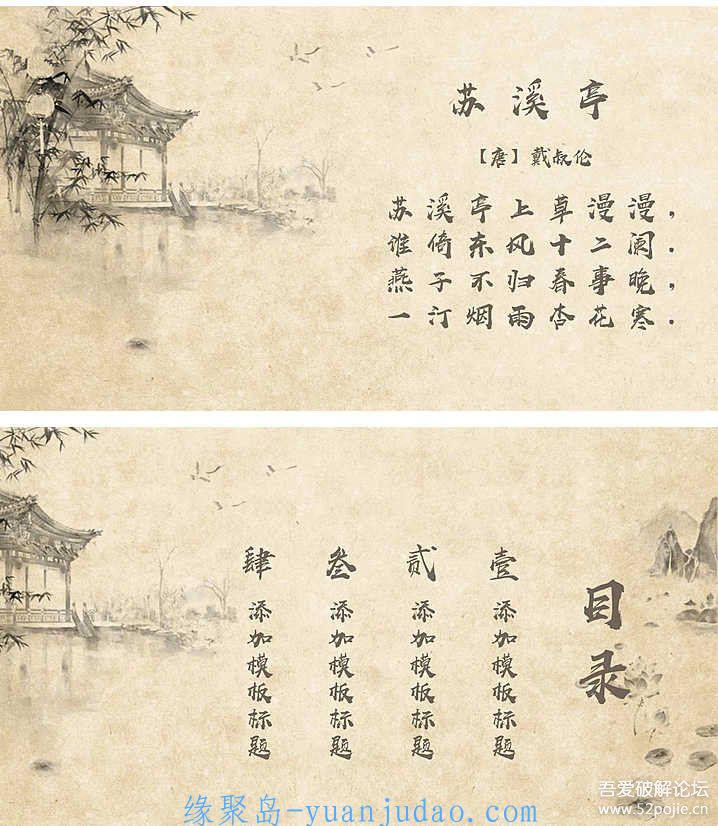 苏溪亭
【唐】戴叔伦
苏溪亭上草漫漫，
谁倚东风十二阑.
燕子不归春事晚，
一汀烟雨杏花寒.
目录
壹
添加模板标题
贰
添加模板标题
叁
添加模板标题
肆
添加模板标题
吾爱破解论坛
www.52pojie.cn
缘聚岛-yuanjudao.com